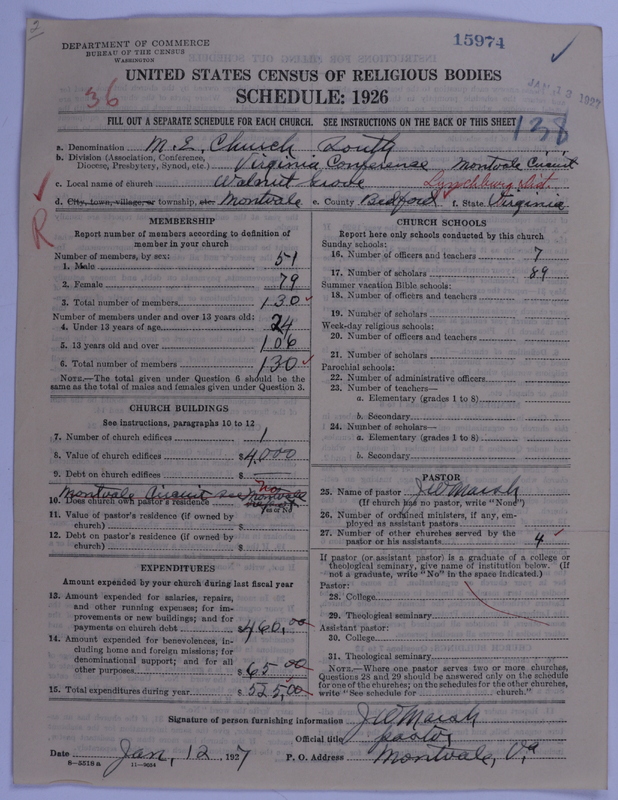 2
DEPARTMENT OF COMMERCE
BUREAU OF THE CENSUS
WASHINGTON
15974
UNITED STATES CENSUS OF RELIGIOUS BODIES
36
SCHEDULE: 1926
JAN 13 1927
FILL OUT A SEPARATE SCHEDULE FOR EACH CHURCH. SEE INSTRUCTIONS ON THE BACK OF THIS SHEET
138
a. Denomination M. E. Church South
b. Division (Association, Conference, Diocese, Presbytery, Synod, etc.) Virginia Conference Montvale Circuit
c. Local name of church Walnut Grove Lynchburg Dist.
d. City, town, village, or township, etc. Montvale e. County Bedford f. State Virginia
R
MEMBERSHIP
Report number of members according to definition of
member in your church
Number of members, by sex:
1. Male 51
2. Female 79
3. Total number of members 130
Number of members under and over 13 years old:
4. Under 13 years of age 24
5. 13 years old and over 106
6. Total number of members 130
NOTE.—The total given under Question 6 should be the
same as the total of males and females given under Question 3.
CHURCH BUILDINGS
See instructions, paragraphs 10 to 12
7. Number of church edifices 1
8. Value of church edifices $4,000
9. Debt on church edifices $
Montvale Circuit see Montvale
No
10. Does church own pastor's residence
Yes or No
11. Value of pastor's residence (if owned by
church) $
12. Debt on pastor's residence (if owned by
church) $
EXPENDITURES
Amount expended by your church during last fiscal year
13. Amount expended for salaries, repairs,
and other running expenses; for im-
provements or new buildings; and for
payments on church debt $460.00
14. Amount expended for benevolences, in-
cluding home and foreign missions; for
denominational support; and for all
other purposes $65.00
15. Total expenditures during year $525.00
CHURCH SCHOOLS
Report here only schools conducted by this church
Sunday schools:
16. Number of officers and teachers 7
17. Number of scholars 89
Summer vacation Bible schools:
18. Number of officers and teachers
19. Number of scholars
Week-day religious schools:
20. Number of officers and teachers
21. Number of scholars
Parochial schools:
22. Number of administrative officers
23. Number of teachers—
a. Elementary (grades 1 to 8)
b. Secondary
24. Number of scholars—
a. Elementary (grades 1 to 8)
b. Secondary
PASTOR
25. Name of pastor J W Marsh
(If church has no pastor, write "None")
26. Number of ordained ministers, if any, em-
ployed as assistant pastors
27. Number of other churches served by the
pastor or his assistants 4
If pastor (or assistant pastor) is a graduate of a college or
theological seminary, give name of institution below. (If
not a graduate, write "No" in the space indicated.)
Pastor:
28. College
29. Theological seminary
Assistant pastor:
30. College
31. Theological seminary
NOTE.—Where one pastor serves two or more churches,
Questions 28 and 29 should be answered only on the schedule
for one of the churches; on the schedules for the other churches,
write "See schedule for church."
Signature of person furnishing information J W Marsh
Official title pastor
Date Jan, 12 1927 P. O. Address Montvale, Va
8—5518 a 11—9684